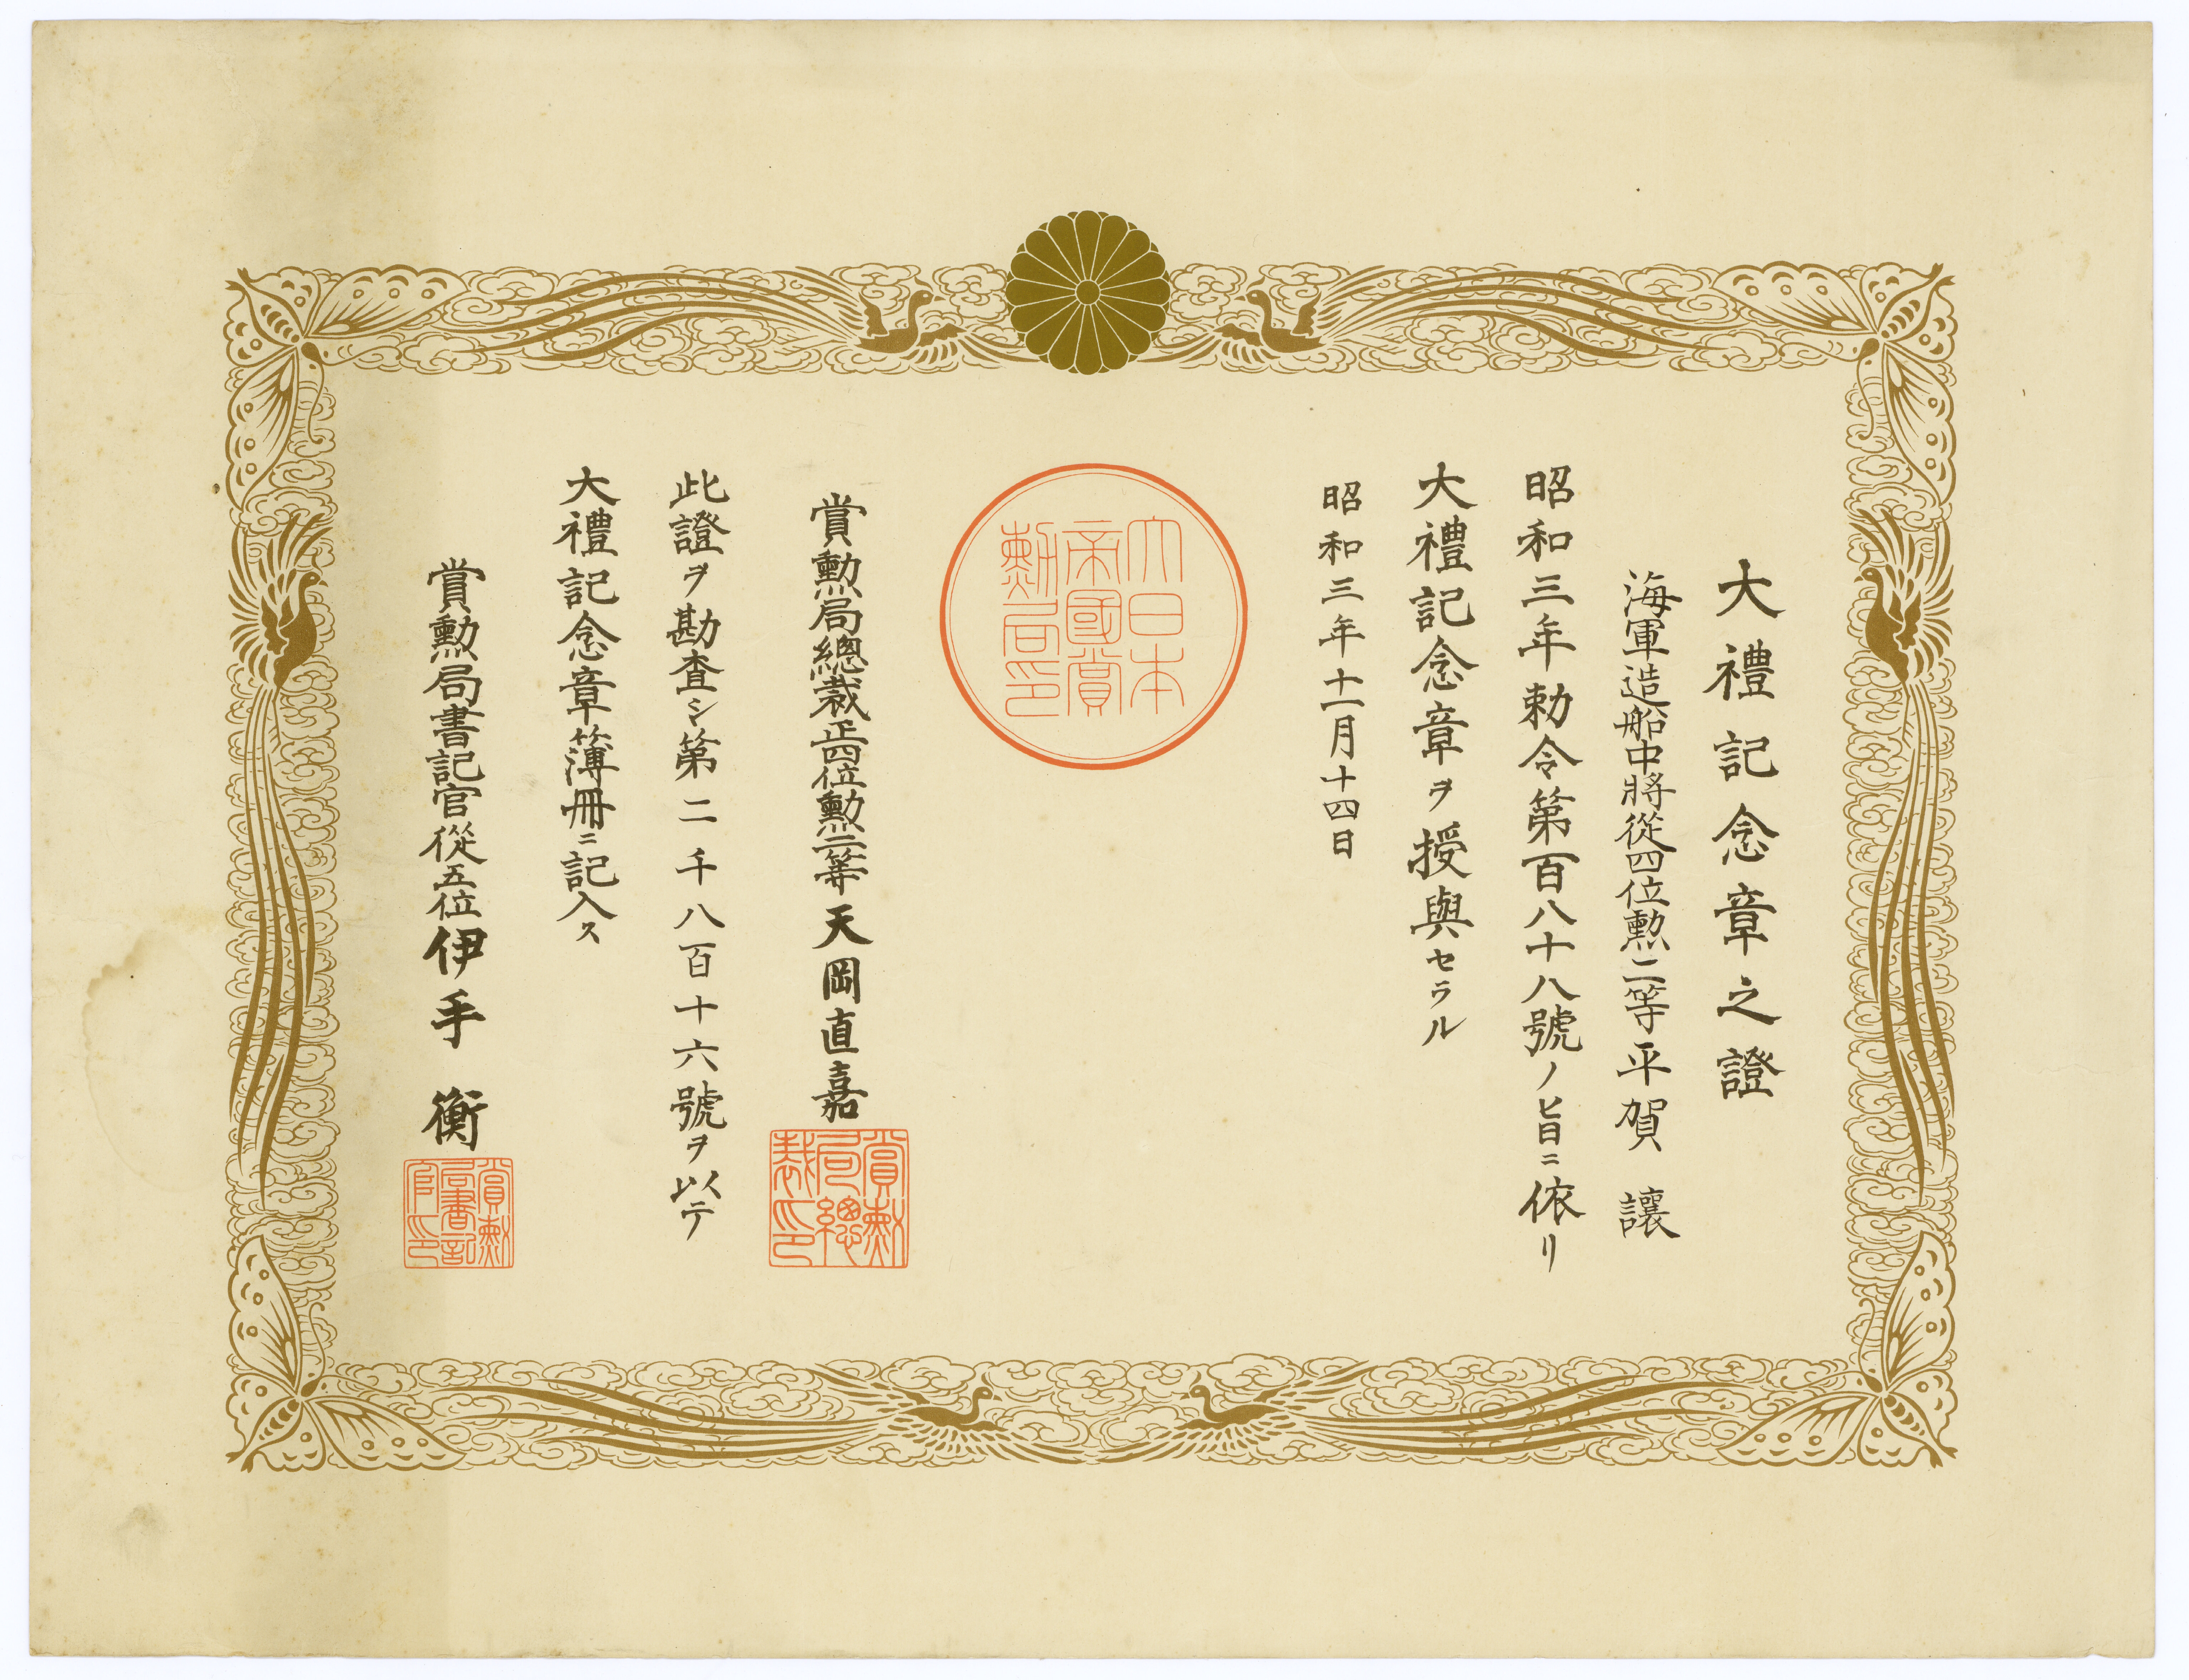 大禮記念章之證
海軍造船中將從四位勲二等平賀 讓
昭和三年勅令第百八十八號ノ旨ニ依リ
大禮記念章ヲ授與セラル
昭和三年十一月十四日
大日本
帝國賞
勲局印
賞勲局總裁正四位勲二等天岡直嘉
賞勲
局總
裁印
此證ヲ勘査シ第二千八百十六號ヲ以テ
大禮記念章簿冊ニ記入ス
賞勲局書記官從五位伊手 衡
賞勲
局書記
官印